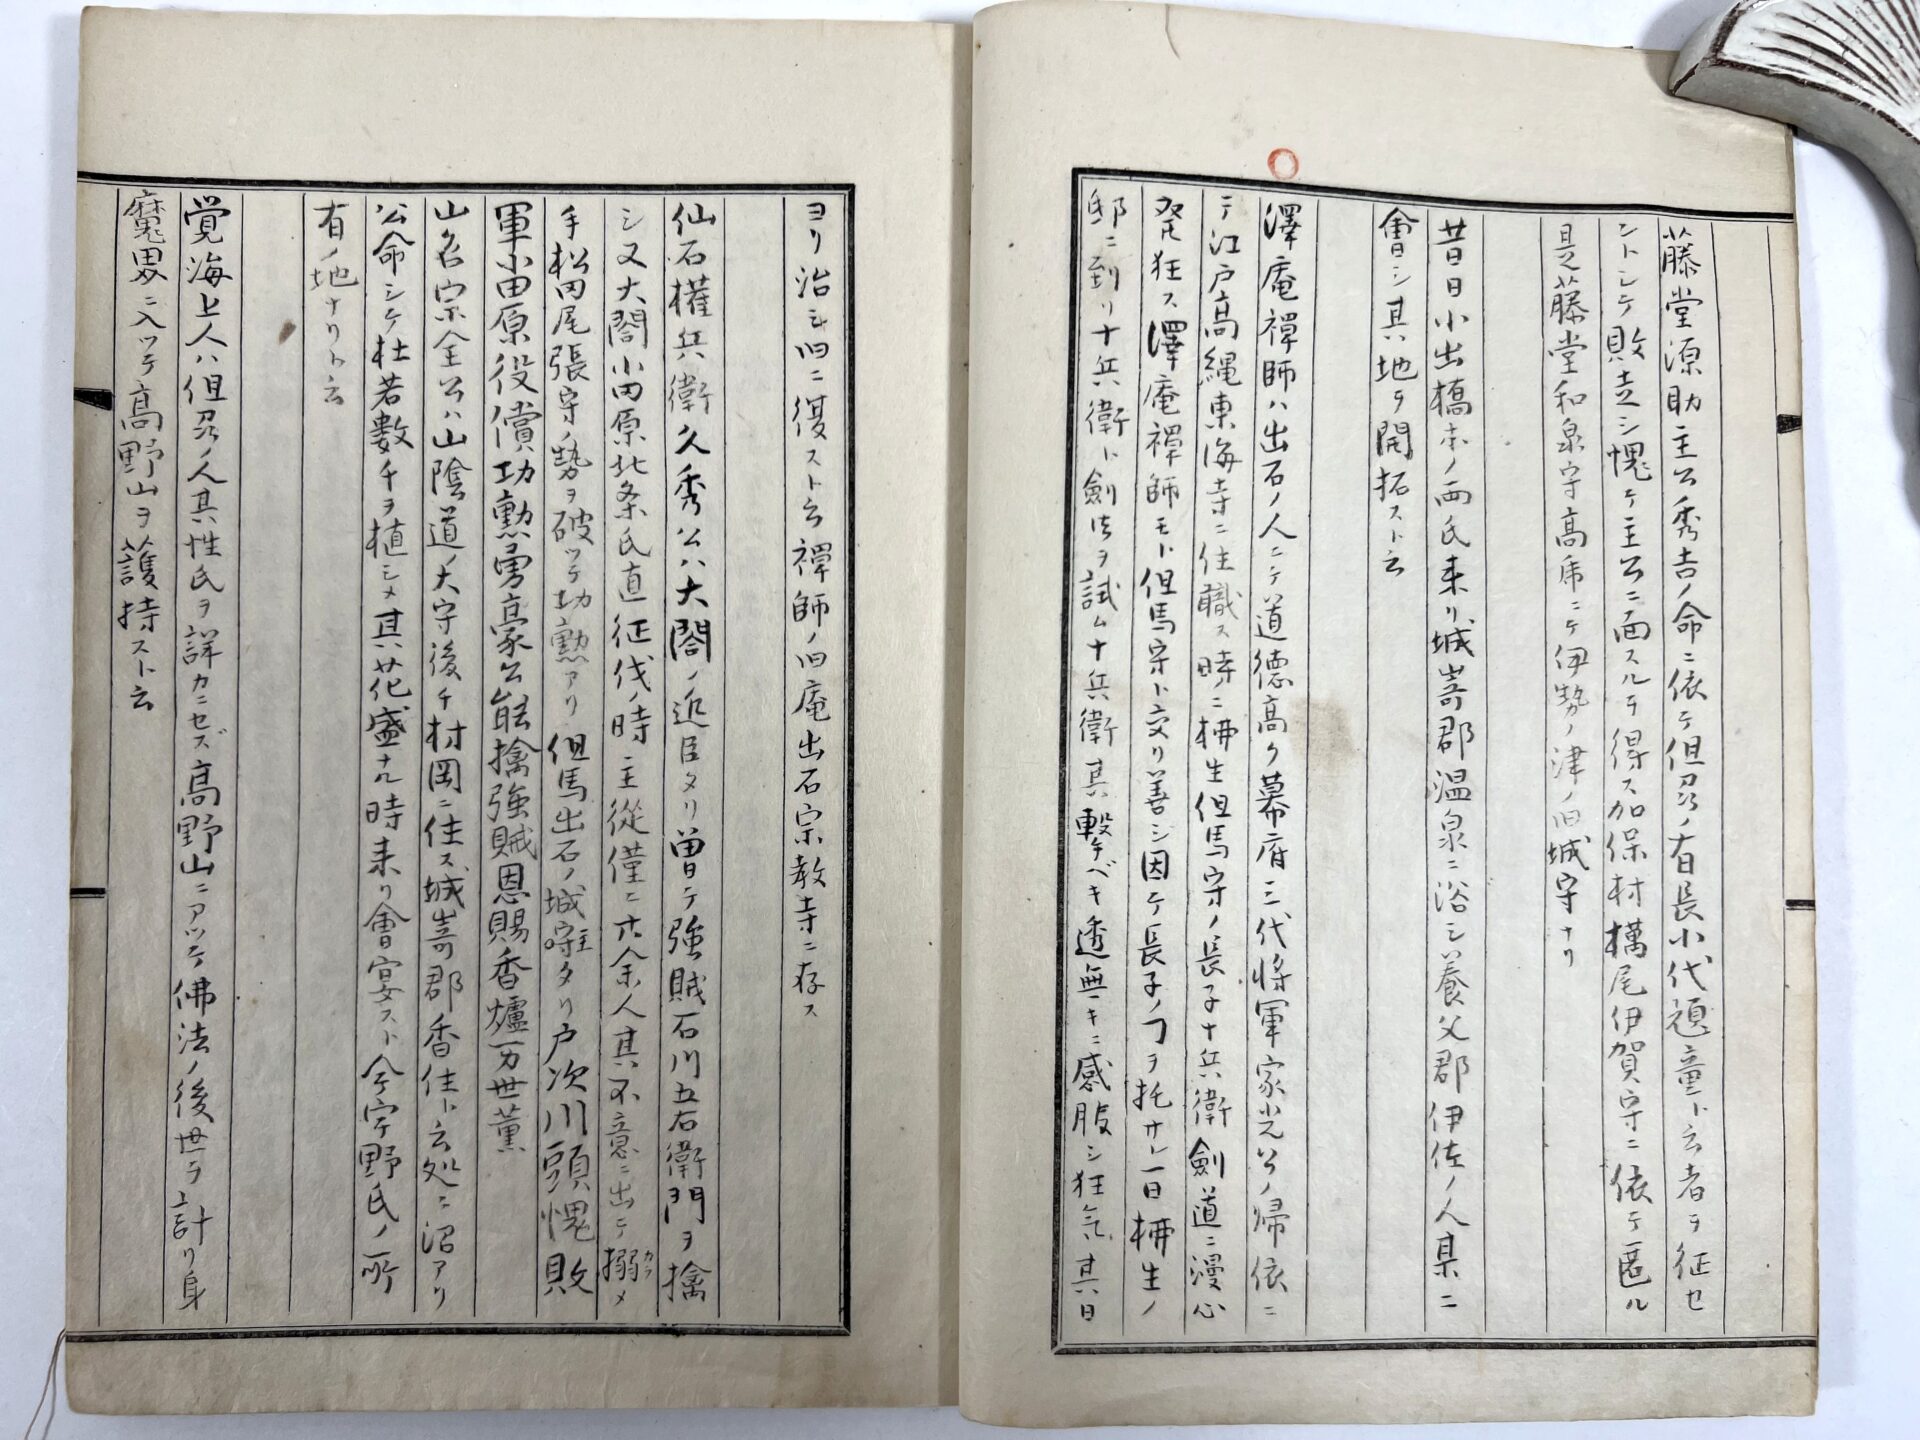 藤堂源助主公秀吉ノ命ニ依テ但州ノ酋長小代頑童ト云者ヲ征セ
ントシテ敗走シ愧テ主公ニ面スルヲ得ス加保村橋尾伊賀守ニ依テ匿ル
是藤堂和泉守高虎ニテ伊勢ノ津ノ旧城守ナリ
昔日小出橋本ノ両氏来リ城崎郡温泉ニ浴シ養父郡伊佐ノ人某ニ
會シ其地ヲ開拓スト云
澤庵禪師ハ出石ノ人ニテ道德高ク幕府三代将軍家光公ノ帰依ニ
テ江戸高縄東海寺ニ住職ス時ニ柳生但馬守ノ長子十兵衛劍道ニ漫心
発狂ス澤庵禪師モト但馬守ト交リ善シ因テ長子ノヿヲ托サレ一日柳生ノ
邸ニ到リ十兵衛ト劍法ヲ試ム十兵衛其撃ベキ透無キニ感服シ狂気其日
ヨリ治シ旧ニ復スト云禪師ノ旧庵出石宗教寺ニ存ス
仙石権兵衛久秀公ハ大閤ノ近臣タリ曽テ強賊石川五右衛門ヲ擒
シ又大閤小田原北条氏直征伐ノ時主從僅ニ廿余人其不意ニ出テ搦メ
手松田尾張守ノ勢ヲ破ツテ功勲アリ但馬出石ノ城主タリ戸次川頭愧敗
軍小田原役償功勲勇豪公能擒強賊恩賜香爐万世薫
山名宗全公ハ山陰道ノ大守後チ村岡ニ住ス城崎郡香住ト云処ニ沼アリ
公命シテ杜若數千ヲ植シメ其花盛ナル時来リ會宴スト今宇野氏ノ所
有ノ地ナリト云
覚海上人ハ但州ノ人其性氏ヲ詳カニセズ高野山ニアツテ佛法ノ後世ヲ計リ身
魔界ニ入ツテ高野山ヲ護持スト云